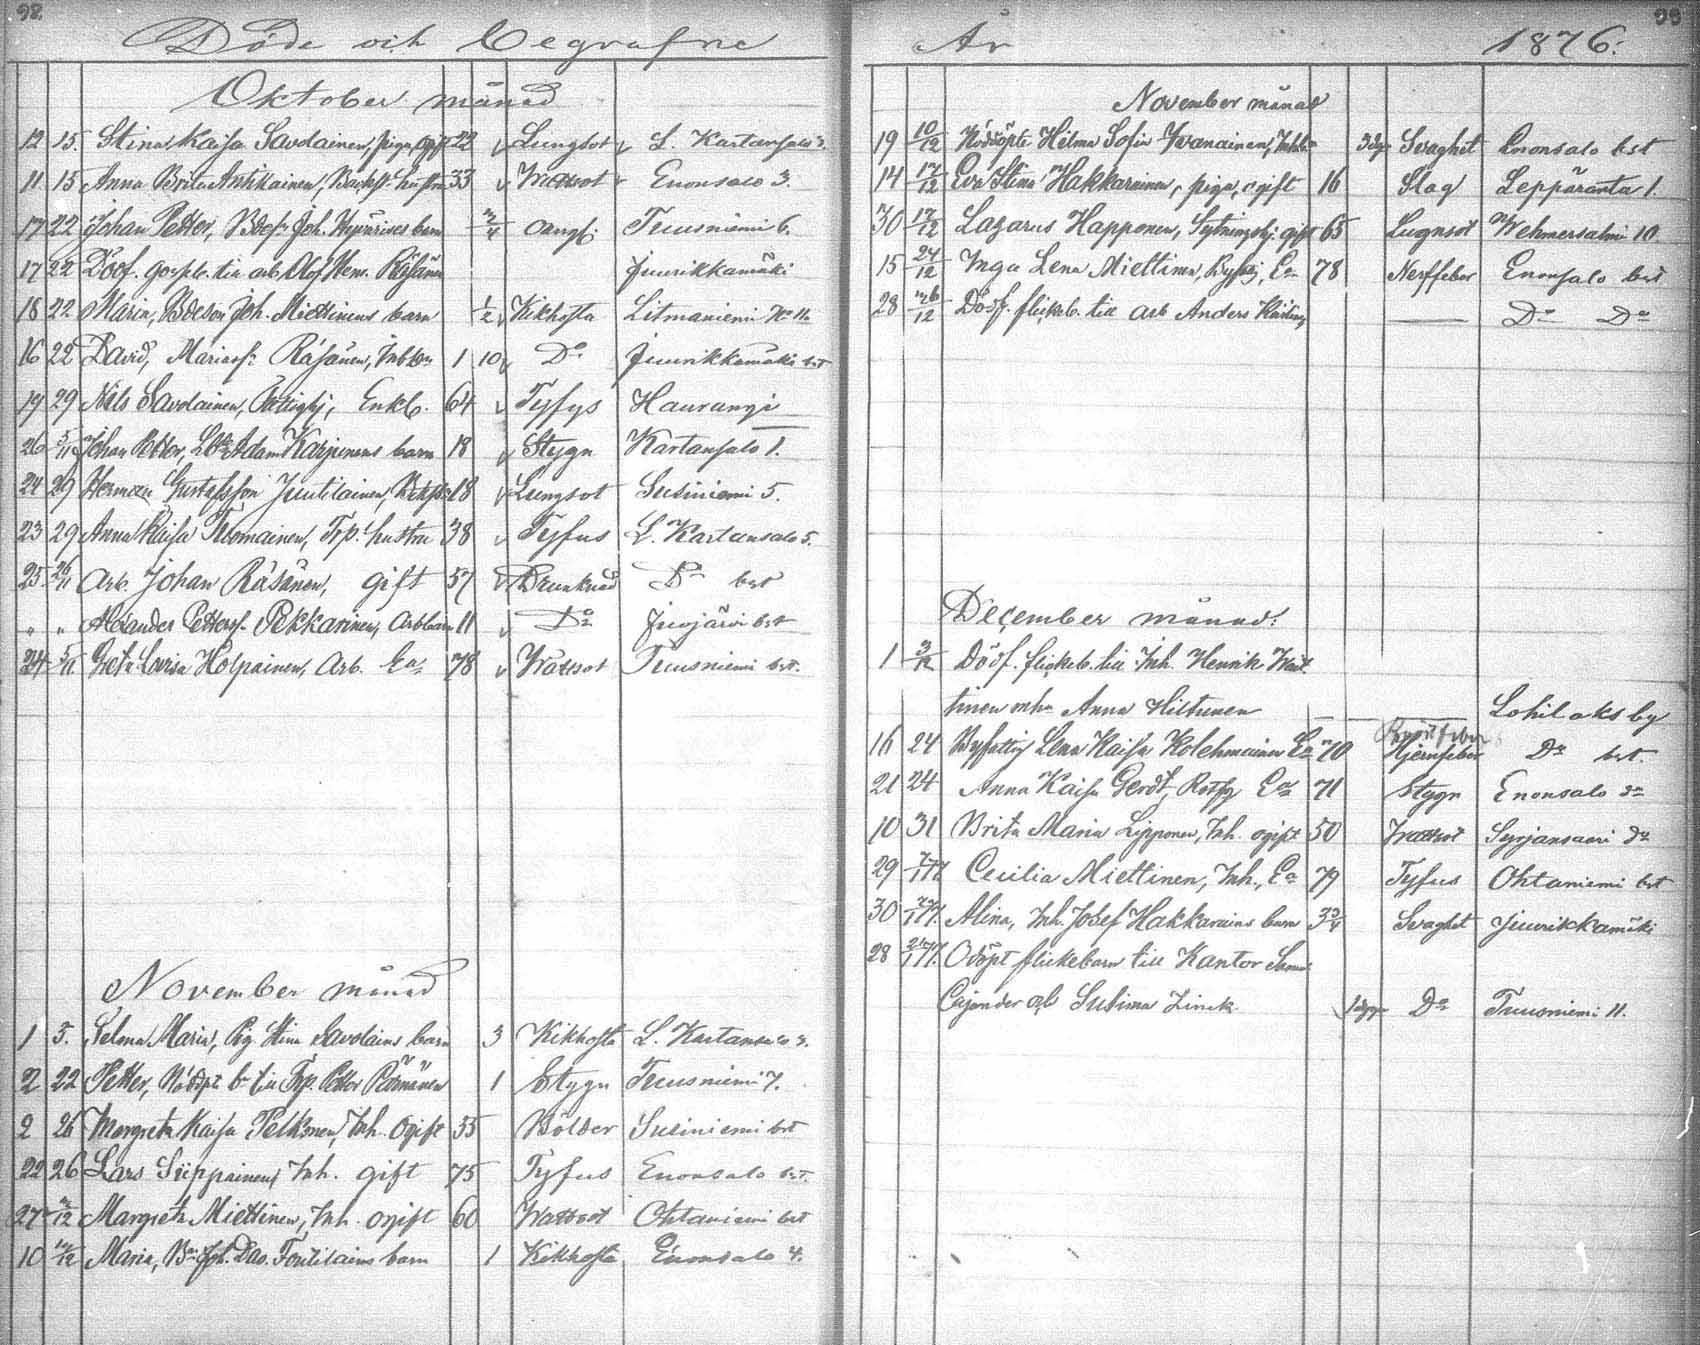 98.
Döde och begrafne
Oktober månad
12 15. Stina Kaisa Savolainen, piga, ogift 22 Lungsot L. Kartansalo 3.
11 15 Anna Brita Antikainen, hustru 33 Wattsot Enonsalo 3.
17 22 Johan Petter, Bdesn Joh. barn 3/4 Tuusniemi 6.
17 22 Dödf. gosseb. till arb. Olof Hen. Räsänen Juurikkamäki
18 22 Maria, Bdeson Joh. Miettinens barn 1/2 Kikhosta Litmaniemi
16 22 David, Räsänen, 1 10 Do Juurikkamäki bst
19 29 Nils Savolainen, Enkl. 64 Tyfys Haurangi
26 5/11 Johan Petter, Adam Karjunens barn 18 Stygn Kartansalo 1.
24 29 Herman Gustafsson Juutilainen, 18 Lungsot Susiniemi 5.
23 29 Anna Kaisa Tuomainen, Trp. hustru 38 Tyfus L. Kartansalo 5.
25 26/11 Arb. Johan Räsänen, gift 57 Drunknad Do bst
" " Alexander Petterss. Pekkarinen, Arb barn 11 Do Juojärvi bst
24 5/11. Greta Lovisa Holpainen, Arb. Ea 78 Wattsot Tuusniemi bst.
November månad
1 5. Selma Maria, Pig. Stina Savolains barn 3 Kikhosta L. Kartansalo 3.
2 22 Petter, Nödöpt b. till Trp. Petter 1 Stygn Tuusniemi 7.
2 26 Margreta Kaisa Pelkonen, Inh. Ogift 55 Bölder Susiniemi bst
22 26 Lars Siippainen, Inh. gift 75 Tyfus Enonsalo bst.
27 3/12 Margreta Miettinen, Inh. ogift 60 Wattsot Ohtaniemi bst
10 10/12 Maria, Bn Joh. Dav. barn 1 Kikhosta Enonsalo 4.
99
År 1876.
November månad
19 10/12 Nöddöpte Hilma Sofia 3 dgr Svaghet Enonsalo bst
14 17/12 Eva Stina Hakkarainen, piga, ogift 16 Slag Leppäranta 1.
30 17/12 Lazarus Happonen, gift 65 Lugnsot Wehmersalmi 10
15 24/12 Inga Lena Miettinen, Ea 78 Nerffeber Enonsalo bst
28 26/12 Dödf. flickeb. till arb Anders — Do Do
December månad.
1 3/12 Dödf. flickeb. till Inh. Henrik
tinen o h Anna Hiltunen — Lohilaks by
16 24 Byfattig Lena Kaisa Kolehmainen Ea 70 Hjernfeber Do bst.
21 24 Anna Kaisa Gerdt, Ea 71 Stygn Enonsalo do
10 31 Brita Maria Lipponen, Inh. ogift 50 Wattsot Syrjansaari do
29 7/1 77. Cecilia Miettinen, Inh., Ea 79 Tyfus Ohtaniemi bst
30 1 77. Alina, Inh. Josef Hakkarains barn 3 3/4 Svaghet Juurikkamäki
28 21/1 77. Odöpt flickebarn till Kantor
Cajander och Susinna Zinck Do Tuusniemi 11.